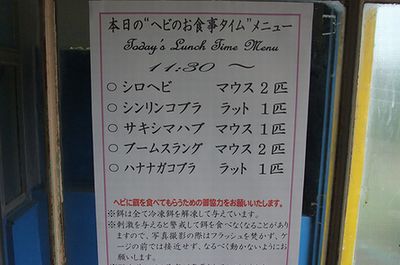 本日の"ヘビのお食事タイム"メニュー
Today's Lunch Time Menu
11:30 ～
○シロヘビ マウス 2匹
○シンリンコブラ ラット 1匹
○サキシマハブ マウス 1匹
○ブームスラング マウス 2匹
○ハナナガコブラ ラット 1匹
ヘビに餌を食べてもらうための御協力をお願いいたします。
※餌は全て冷凍餌を解凍して与えています。
※刺激を与えると警戒して餌を食べなくなることがあり
ますので、写真撮影の際はフラッシュを焚かず、ケ
ージの前では接近せず、なるべく動かないようにお
願いします。